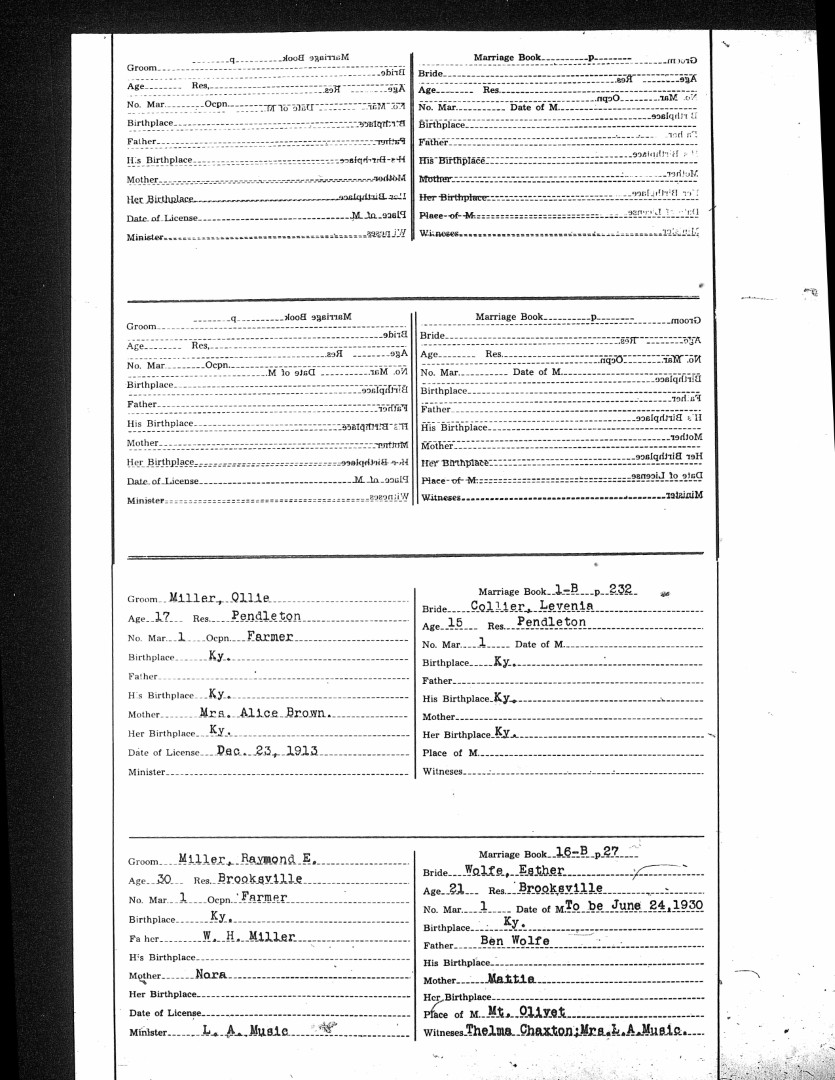 Marriage Book p
Groom
Age Res.
No. Mar Ocpn.
Birthplace
Father
His Birthplace
Mother
Her Birthplace
Date of License
Minister
Marriage Book p
Bride
Age Res
No. Mar Date of M.
Birthplace
Father
His Birthplace
Mother
Her Birthplace
Place of M.
Witneses
Marriage Book p
Groom
Age Res.
No. Mar Ocpn.
Birthplace
Father
His Birthplace
Mother
Her Birthplace
Date of License
Minister
Marriage Book p
Bride
Age Res.
No. Mar Date of M.
Birthplace
Father
His Birthplace
Mother
Her Birthplace
Place of M.
Witneses
Groom Miller, Ollie
Age 17 Res. Pendleton
No. Mar. 1 Ocpn. Farmer
Birthplace Ky.
Father
His Birthplace Ky.
Mother Mrs. Alice Brown.
Her Birthplace Ky.
Date of License Dec. 23, 1913
Minister
Marriage Book 1-B p 232
Bride Collier, Levenia
Age 15 Res. Pendleton
No. Mar. 1 Date of M.
Birthplace Ky.
Father
His Birthplace Ky.
Mother
Her Birthplace Ky.
Place of M.
Witneses
Groom Miller, Raymond E.
Age 30 Res. Brooksville
No. Mar 1 Ocpn. Farmer
Birthplace Ky.
Fa her W. H. Miller
His Birthplace
Mother Nora
Her Birthplace
Date of License
Minister L. A. Music
Marriage Book 16-B p. 27
Bride Wolfe, Esther
Age 21 Res. Brooksville
No. Mar. 1 Date of M. To be June 24, 1930
Birthplace Ky.
Father Ben Wolfe
His Birthplace
Mother Mattie
Her Birthplace
Place of M. Mt. Olivet
Witneses Thelma Chaxton; Mrs. L. A. Music.